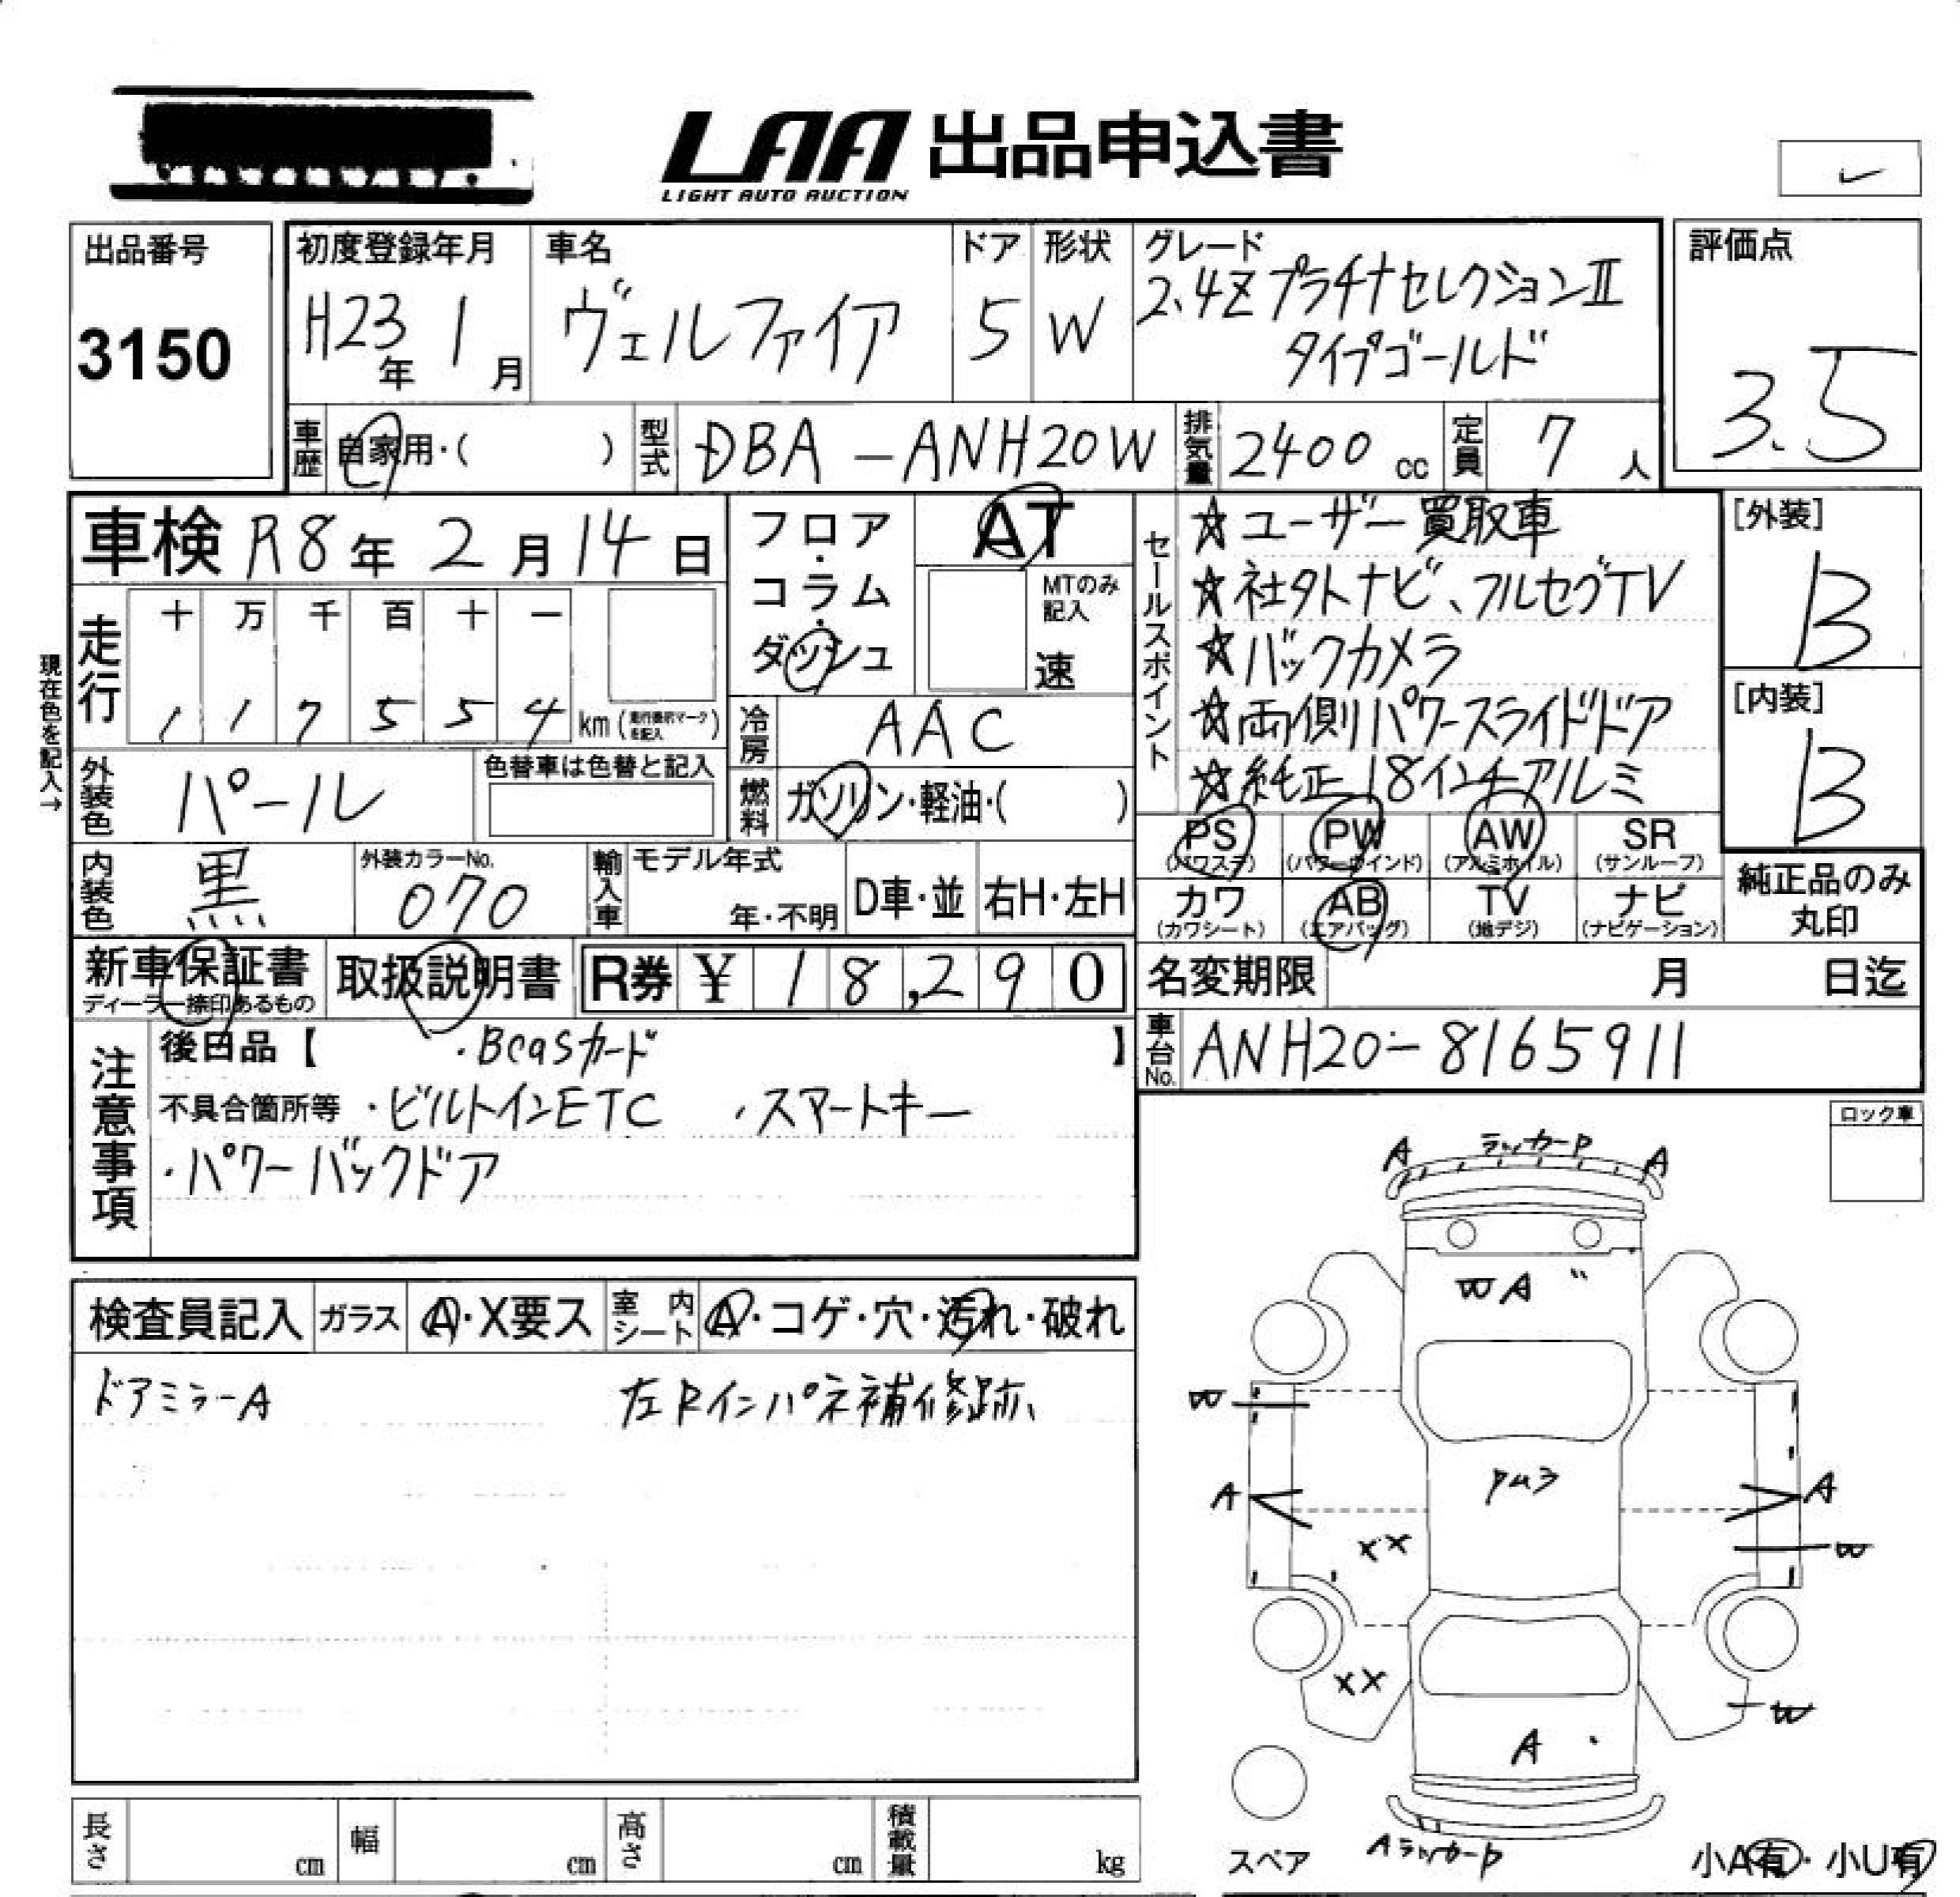 LAA 出品申込書
LIGHT AUTO AUCTION
出品番号
3150
初度登録年月
H23年 1月
車名
ヴェルファイア
ドア
5
形状
W
グレード
2.4Z プラチナセレクションⅡ
タイプゴールド
評価点
3.5
車歴 自家用・( )
型式 DBA-ANH20W
排気量 2400 cc
定員 7 人
車検 R8年 2月 14日
フロア・コラム・ダッシュ
AT
MTのみ記入
速
セールスポイント
☆ユーザー買取車
☆社外ナビ、フルセグTV
☆バックカメラ
☆両側パワースライドドア
☆純正18インチアルミ
[外装]
B
[内装]
B
現在色を記入→
走行
十 万 千 百 十 一
1 1 7 5 5 4 km (走行表示マークを記入)
冷房 AAC
外装色 パール
色替車は色替と記入
燃料 ガソリン・軽油・( )
内装色 黒
外装カラーNo.
070
輸入車
モデル年式
年・不明
D車・並
右H・左H
PS (パワステ)
PW (パワーウインド)
AW (アルミホイル)
SR (サンルーフ)
カワ (カワシート)
AB (エアバッグ)
TV (地デジ)
ナビ (ナビゲーション)
純正品のみ丸印
新車保証書
ディーラー捺印あるもの
取扱説明書
R券 ¥ 18,290
名変期限 月 日迄
車台No. ANH20-8165911
注意事項
後日品【 ・Bcasカード 】
不具合箇所等 ・ビルトインETC ・スマートキー
・パワーバックドア
ロック車
検査員記入
ガラス A・X要ス
室内シート A・コゲ・穴・汚れ・破れ
ドアミラーA 左Rインパネ補修跡
A ラッカーP A
W A
W
A
A
XX
W
XX
W
A
スペア
AラッカーP
小A有・小U有
長さ cm
幅 cm
高さ cm
積載量 kg